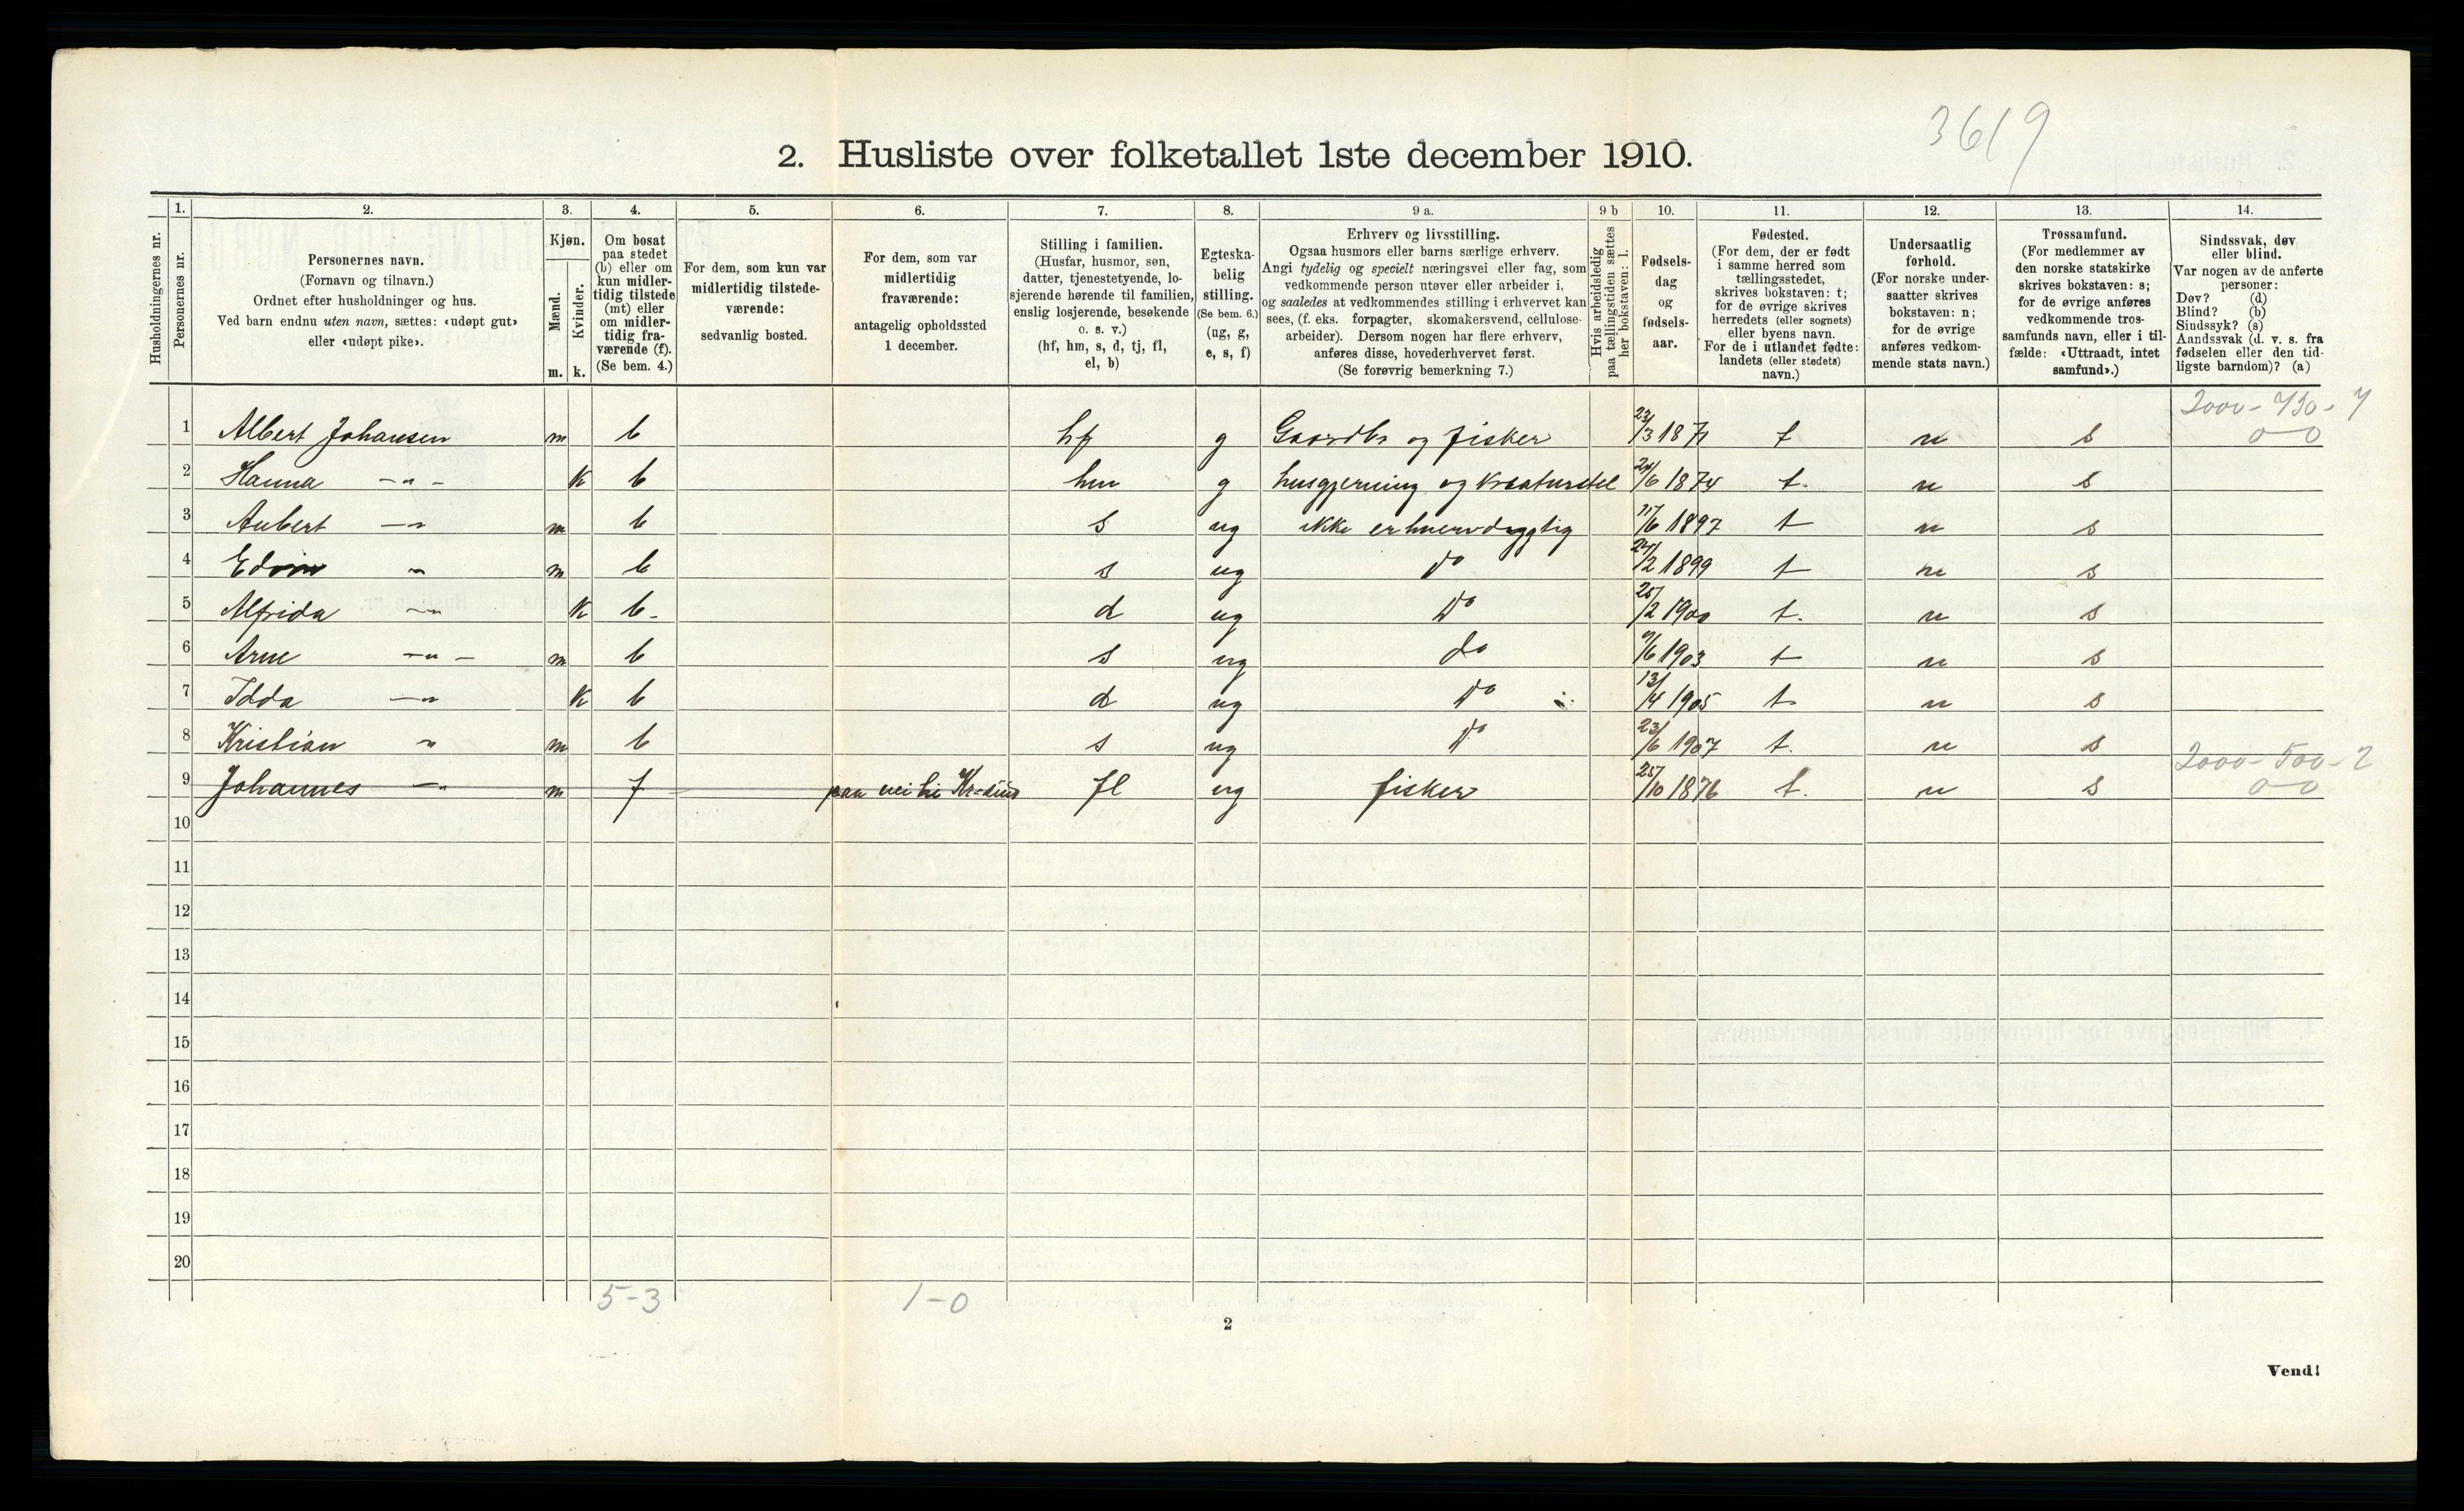 3619
2. Husliste over folketallet 1ste december 1910.
Husholdningernes nr.
1. Personernes nr.
2. Personernes navn.
(Fornavn og tilnavn.)
Ordnet efter husholdninger og hus.
Ved barn endnu uten navn, sættes: «udøpt gut»
eller «udøpt pike».
3. Kjøn.
Mænd. m.
Kvinder. k.
4. Om bosat
paa stedet
(b) eller om
kun midler-
tidig tilstede
(mt) eller
om midler-
tidig fra-
værende (f).
(Se bem. 4.)
5. For dem, som kun var
midlertidig tilstede-
værende:
sedvanlig bosted.
6. For dem, som var
midlertidig
fraværende:
antagelig opholdssted
1 december.
7. Stilling i familien.
(Husfar, husmor, søn,
datter, tjenestetyende, lo-
sjerende hørende til familien,
enslig losjerende, besøkende
o. s. v.)
(hf, hm, s, d, tj, fl,
el, b)
8. Egteska-
belig
stilling.
(Se bem. 6.)
(ug, g,
e, s, f)
9 a. Erhverv og livsstilling.
Ogsaa husmors eller barns særlige erhverv.
Angi tydelig og specielt næringsvei eller fag, som
vedkommende person utøver eller arbeider i,
og saaledes at vedkommendes stilling i erhvervet kan
sees, (f. eks. forpagter, skomakersvend, cellulose-
arbeider). Dersom nogen har flere erhverv,
anføres disse, hovederhvervet først.
(Se forøvrig bemerkning 7.)
9 b Hvis arbeidsledig
paa tællingstiden sættes
her bokstaven: l.
10. Fødsels-
dag
og
fødsels-
aar.
11. Fødested.
(For dem, der er født
i samme herred som
tællingsstedet,
skrives bokstaven: t;
for de øvrige skrives
herredets (eller sognets)
eller byens navn.
For de i utlandet fødte:
landets (eller stedets)
navn.)
12. Undersaatlig
forhold.
(For norske under-
saatter skrives
bokstaven: n;
for de øvrige
anføres vedkom-
mende stats navn.)
13. Trossamfund.
(For medlemmer av
den norske statskirke
skrives bokstaven: s;
for de øvrige anføres
vedkommende tros-
samfunds navn, eller i til-
fælde: «Uttraadt, intet
samfund».)
14. Sindssvak, døv
eller blind.
Var nogen av de anførte
personer:
Døv? (d)
Blind? (b)
Sindssyk? (s)
Aandssvak (d. v. s. fra
fødselen eller den tid-
ligste barndom)? (a)
2000-730-7
1 Albert Johansen m b hf g Gaardbr og fisker 23/3 1871 t n s 0-0
2 Hanna -"- k b hm g husgjerning og kreaturstel 24/6 1874 t. n s
3 Aubert -"- m b s ug ikke erhvervdygtig 17/6 1897 t n s
4 Edvin " m b s ug do 24/2 1899 t n s
5 Alfrida -"- k b- d ug do 25/2 1900 t. n s
6 Arne -"- m b s ug do 9/6 1903 t n s
7 Idda -"- k b d ug do 13/4 1905 t n s
8 Kristian " m b s ug do 23/6 1907 t. n s
2000-500-2
9 Johannes -"- m f paa vei til Kr-sund fl ug fisker 25/10 1876 t. n s 0-0
10
11
12
13
14
15
16
17
18
19
20
5-3 1-0
2
Vend!